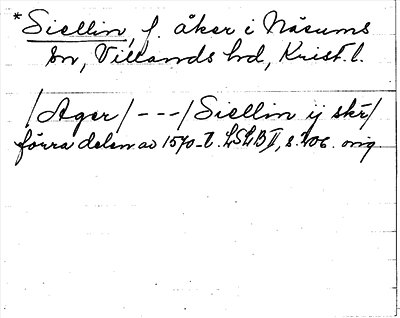 *Siellin, f. åker i Näsums
sn, Villands hd, Krist. l.
/Ager/ - - - /Siellin ij skr/
förra delen av 1570-t. LSLB II, s. 206. orig